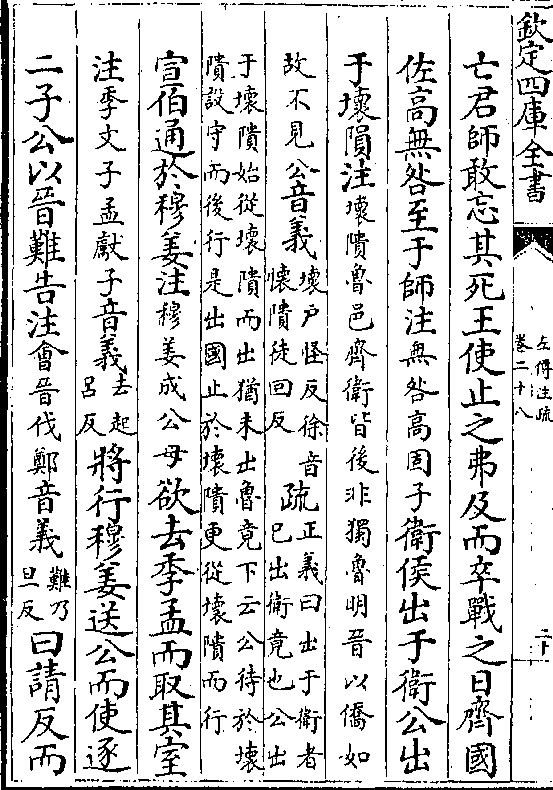 欽定四庫全書
左傳注疏
卷二十八
二十
亡君師敢忘其死王使止之弗及而卒戰之日齊國
佐高無咎至于師注無咎高固子衛侯出于衛公出
于壞隤注壞隤魯邑齊衛皆後非獨魯明晉以僑如
故不見公音義壞户怪反徐音懷隤徒回反疏正義曰出于衛者已出衛竟也公出
于壞隤始從壞隤而出猶未出魯竟下云公待於壞
隤設守而後行是出國止於壞隤更從壞隤而行
宣伯通於穆姜注穆姜成公母欲去季孟而取其室
注季文子孟獻子音義去起呂反將行穆姜送公而使逐
二子公以晉難告注會晉伐鄭音義難乃旦反曰請反而